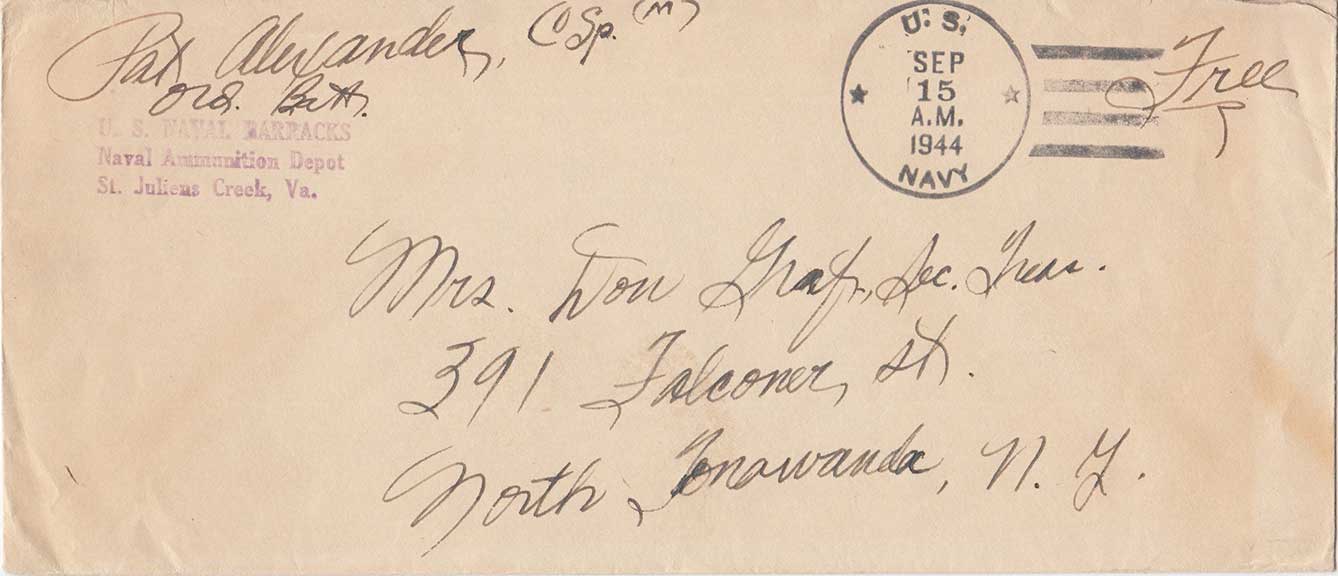 Pat Alexander, CSp. (M)
Ord. Batt.
U. S. NAVAL BARRACKS
Naval Ammunition Depot
St. Juliens Creek, Va.
U. S.
SEP
15
A.M.
1944
NAVY
Free
Mrs. Don Graf, Sec. Treas.
391 Falconer, St.
North Tonawanda, N. Y.